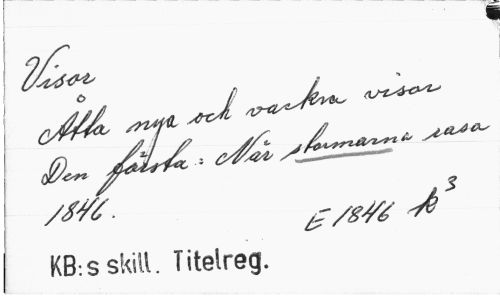 Visor
Åtta nya och vackra visor
Den första: När stormarna rasa
1846. E 1846 k³
KB:s skill. Titelreg.